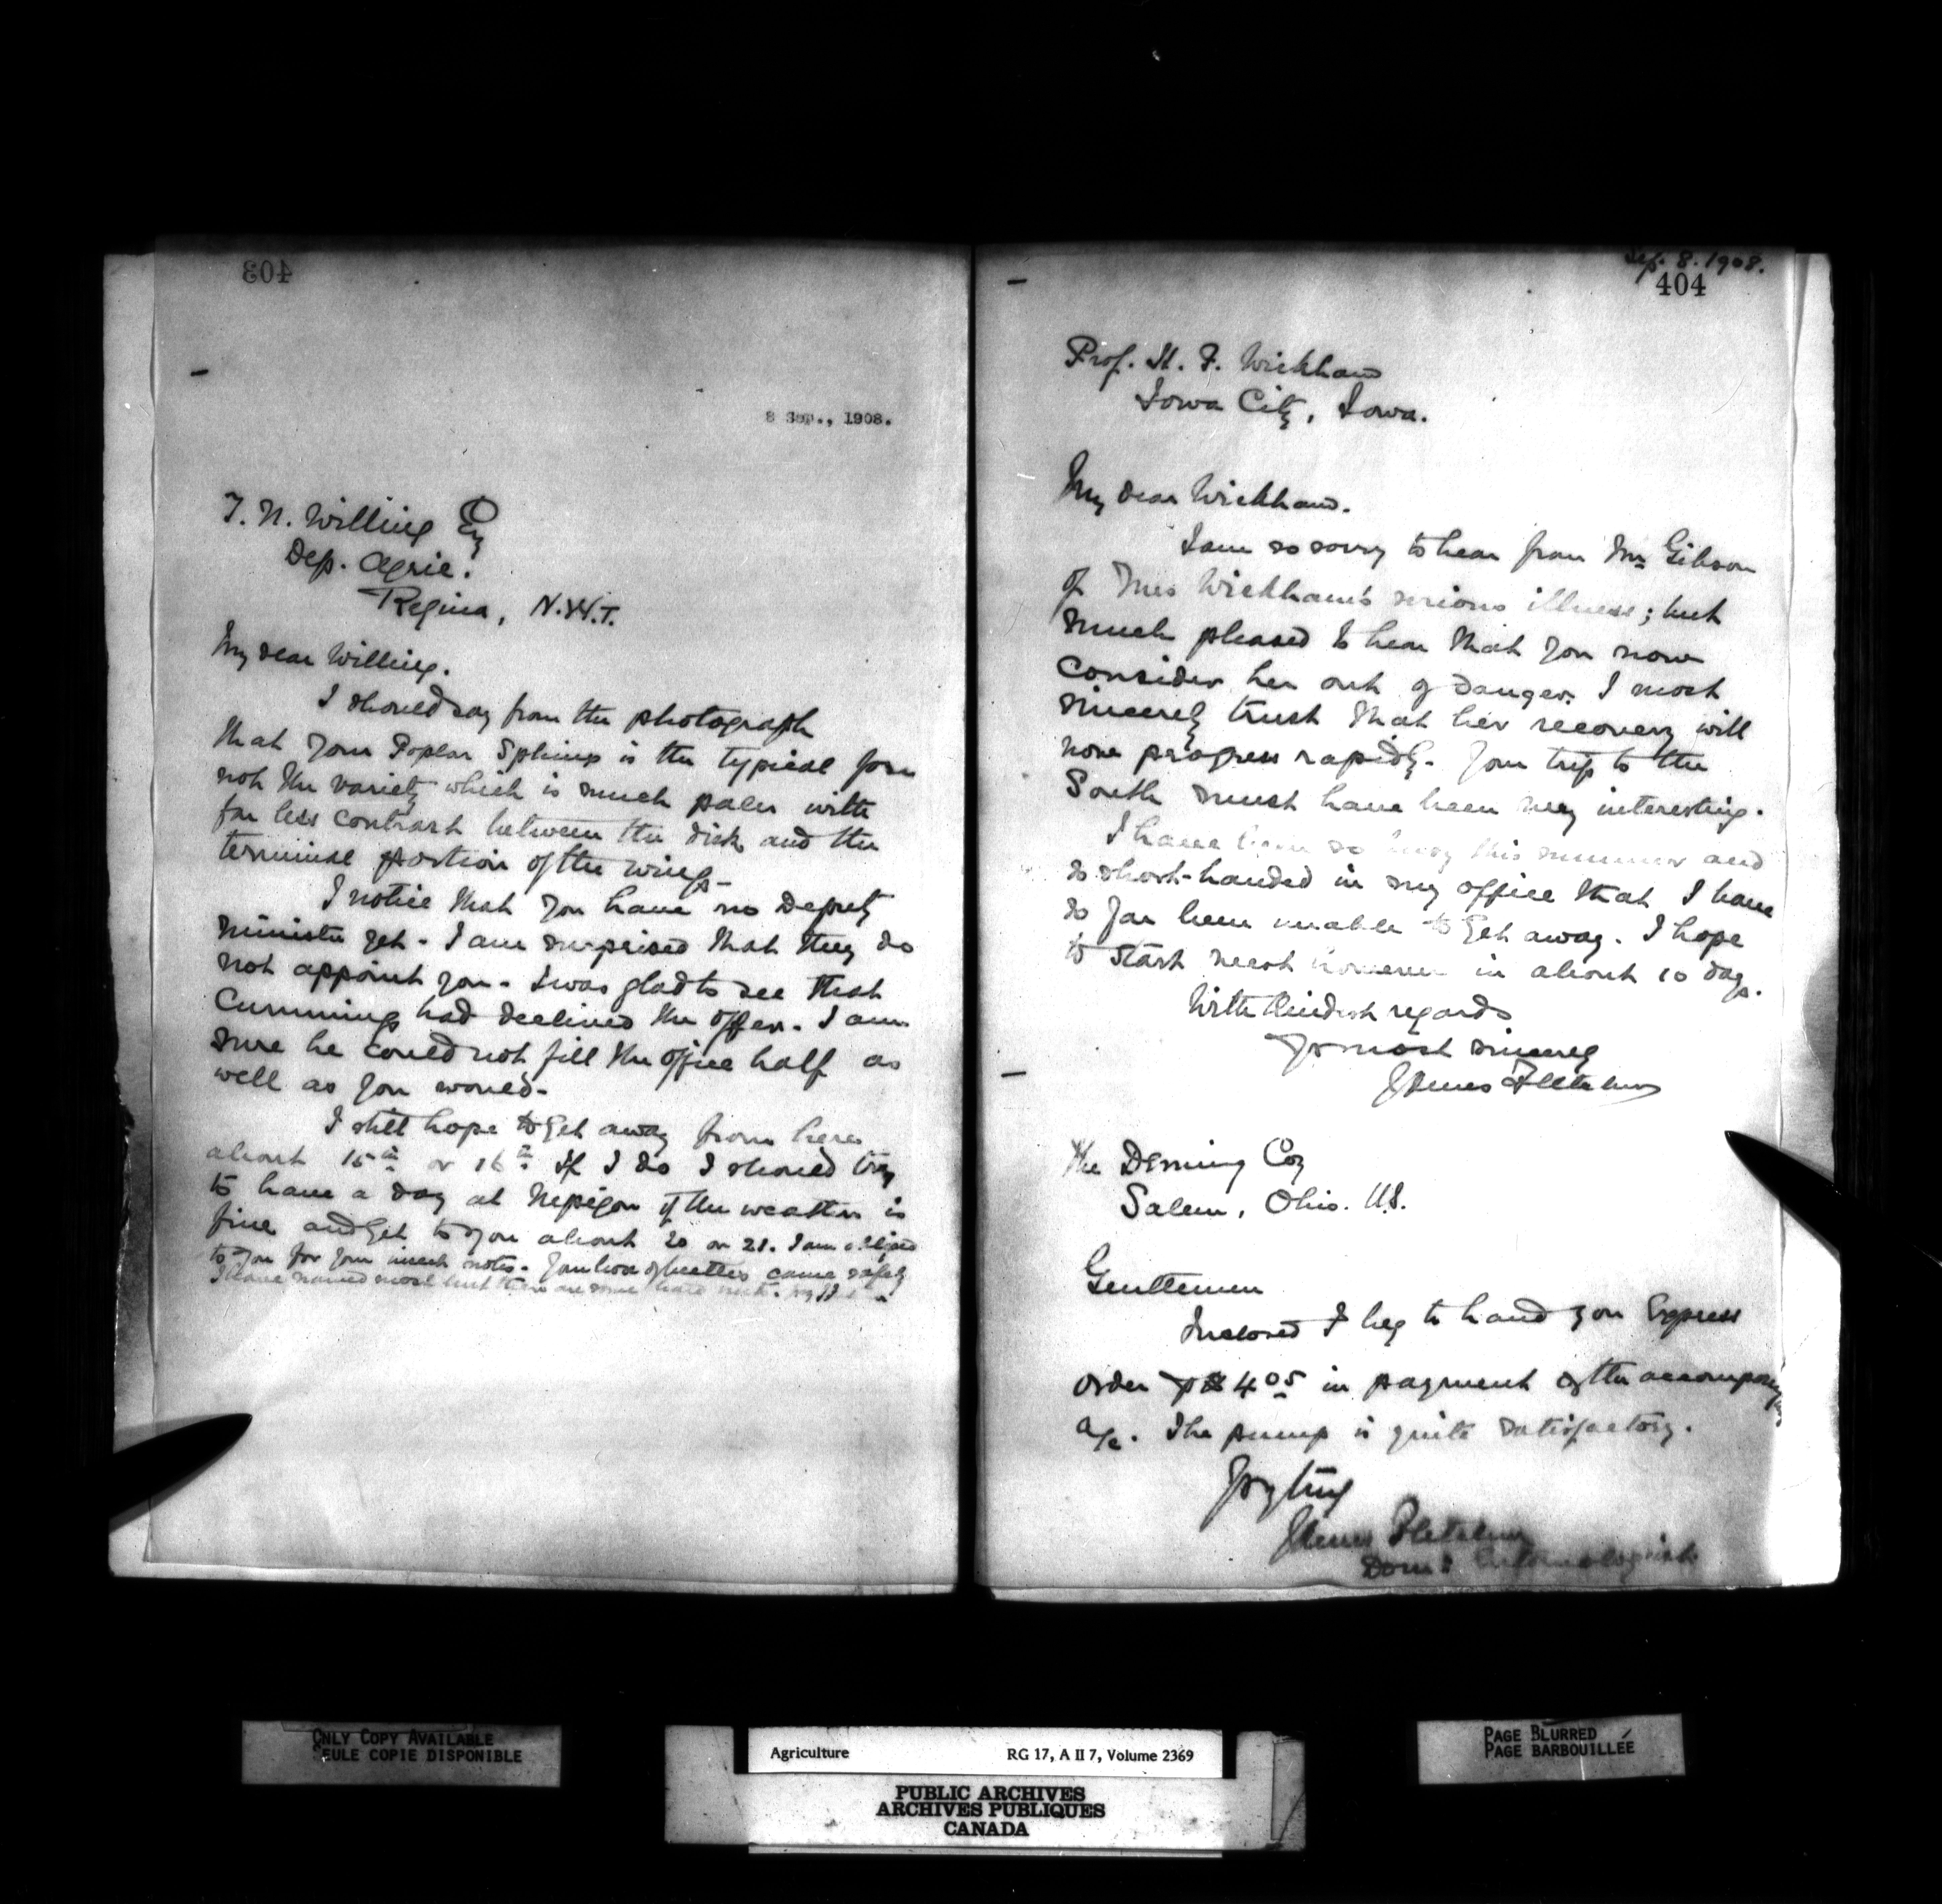 403
8 Sep., 1908.
T. N. Willing Esq
Dep. Agric.
Regina, N.W.T.
My dear Willing.
I should say from the photograph
that your Poplar Sphinx is the typical form
not the variety which is much paler with
far less contrast between the disk and the
terminal portion of the wings-
I notice that you have no Deputy
Minister yet. I am surprised that they do
not appoint you. I was glad to see that
Cumming had declined the offer. I am
sure he could not fill the office half as
well as you would-
I still hope to get away from here
about 15th or 16th If I do I should try
to have a day at Nepigon if the weather is
fine and get to you about 20 or 21. I am obliged
to you for your insect notes. Your box of beetles came safely
I have named most but there are some
Sep. 8. 1908.
404
Prof. H. F. Wickham
Iowa City, Iowa.
My dear Wickham.
I am so sorry to hear from Mr Gibson
of Mrs Wickham's serious illness; but
much pleased to hear that you now
consider her out of danger. I most
sincerely trust that her recovery will
now progress rapidly. Your trip to the
South must have been very interesting.
I have been so busy this summer and
so short-handed in my office that I have
so far been unable to get away. I hope
to start west however in about 10 days.
With kindest regards
Yrs most sincerely
James Fletcher
The Deming Coy
Salem, Ohio. U.S.
Gentlemen
Inclosed I beg to hand you Express
order for $4.05 in payment of the accompanying
a/c. The pump is quite satisfactory.
Yrs truly
James Fletcher
Dom: Entomologist
ONLY COPY AVAILABLE
SEULE COPIE DISPONIBLE
Agriculture RG 17, A II 7, Volume 2369
PUBLIC ARCHIVES
ARCHIVES PUBLIQUES
CANADA
PAGE BLURRED
PAGE BARBOUILLÉE